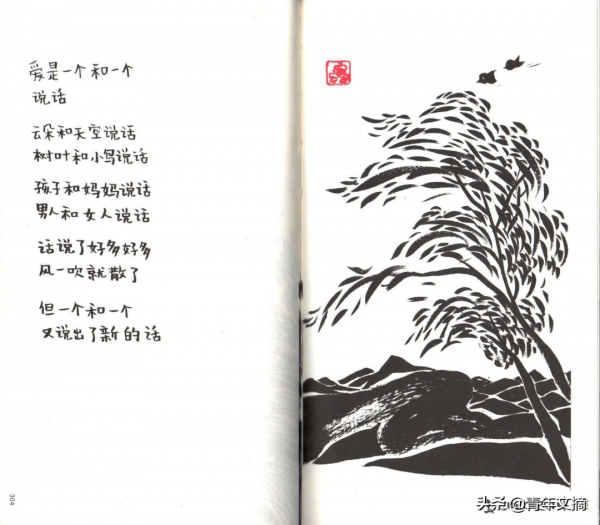 爱是一个和一个
说话
云朵和天空说话
树叶和小鸟说话
孩子和妈妈说话
男人和女人说话
话说了好多好多
风一吹就散了
但一个和一个
又说出了新的话
304
头条@青年文摘